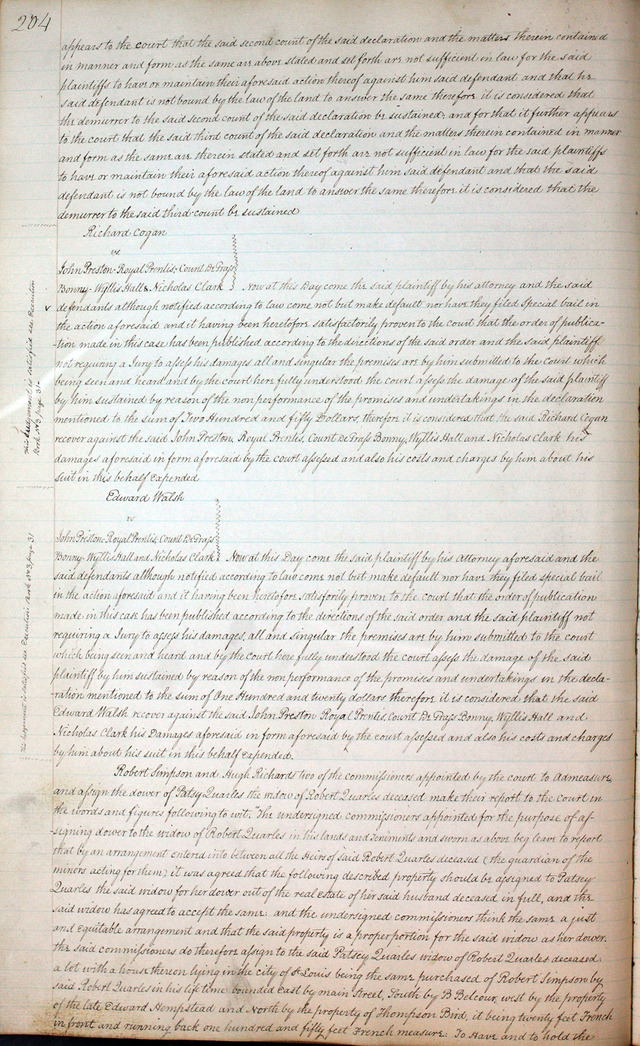 204
appears to the court that the said second count of the said declaration and the matters therein contained
in manner and form as the same are above stated and set forth are not sufficient in law for the said
plaintiffs to have or maintain their aforesaid action thereof against him said defendant and that he
said defendant is not bound by the law of the land to answer the same therefore it is considered that
the demurrer to the said second count of the said declaration be sustained, and for that it further appears
to the court that the said third count of the said declaration and the matters therein contained in manner
and form as the same are therein stated and set forth are not sufficient in law for the said plaintiffs
to have or maintain their aforesaid action thereof against him said defendant and that the said
defendant is not bound by the law of the land to answer the same therefore it is considered that the
demurrer to the said third count be sustained
Richard Cogan
vs
John Preston, Royal Prentis, Count De Grass
Bonny, Wyllis Hall & Nicholas Clark } Now at this Day come the said plaintiff by his attorney and the said
defendants although notified according to law come not but make default nor have they filed Special bail in
the action aforesaid and it having been heretofore satisfactorily proven to the court that the order of publica-
-tion made in this case has been published according to the directions of the said order and the said plaintiff
not requiring a Jury to assess his damages all and singular the premises are by him submitted to the Court which
being seen and heard and by the court here fully understood the court assess the damage of the said plaintiff
by him sustained by reason of the non performance of the promises and undertakings in the declaration
mentioned to the sum of Two Hundred and fifty Dollars, therefore it is considered that the said Richard Cogan
recover against the said John Preston, Royal Prentis, Count De Grass Bonny, Wyllis Hall and Nicholas Clark his
damages aforesaid in form aforesaid by the court assessed and also his costs and charges by him about his
suit in this behalf expended
This Judgment is satisfied see Execution
Book No 3, page 31
Edward Walsh
vs
John Preston, Royal Prentis, Count De Grass
Bonny, Wyllis Hall and Nicholas Clark } Now at this Day come the said plaintiff by his Attorney aforesaid and the
said defendants although notified according to law come not but make default nor have they filed special bail
in the action aforesaid and it having been heretofore satisfactorily proven to the court that the order of publication
made in this case has been published according to the directions of the said order and the said plaintiff not
requiring a Jury to assess his damages, all and singular the premises are by him submitted to the court
which being seen and heard and by the court here fully understood the court assess the damage of the said
plaintiff by him sustained by reason of the non performance of the promises and undertakings in the decla-
-ration mentioned to the sum of One Hundred and twenty dollars therefore it is considered that the said
Edward Walsh recover against the said John Preston Royal Prentis, Count De Grass Bonny, Wyllis Hall and
Nicholas Clark his Damages aforesaid in form aforesaid by the court assessed and also his costs and charges
by him about his suit in this behalf expended.
This Judgment is satisfied see Execution Book No 3 page 31
Robert Simpson and Hugh Richards two of the commissioners appointed by the court to Admeasure
and assign the dower of Patsy Quarles the widow of Robert Quarles deceased make their report to the court in
the words and figures following to wit, "The undersigned commissioners appointed for the purpose of as-
-signing dower to the widow of Robert Quarles in his lands and tenements and sworn as above beg leave to report
that by an arrangement entered into between all the Heirs of said Robert Quarles deceased (the guardian of the
minors acting for them) it was agreed that the following described property should be assigned to Patsey
Quarles the said widow for her dower out of the real estate of her said husband deceased in full, and the
said widow has agreed to accept the same and the undersigned commissioners think the same a just
and equitable arrangement and that the said property is a proper portion for the said widow as her dower.
the said commissioners do therefore assign to the said Patsey Quarles widow of Robert Quarles deceased
a lot with a house thereon lying in the city of St Louis being the same purchased of Robert Simpson by
said Robert Quarles in his life time bounded East by main Street, South by B Belcour, west by the property
of the late Edward Hempstead and North by the property of Thompson Bird, it being twenty feet French
in front and running back one hundred and fifty feet French measure. To Have and to hold the